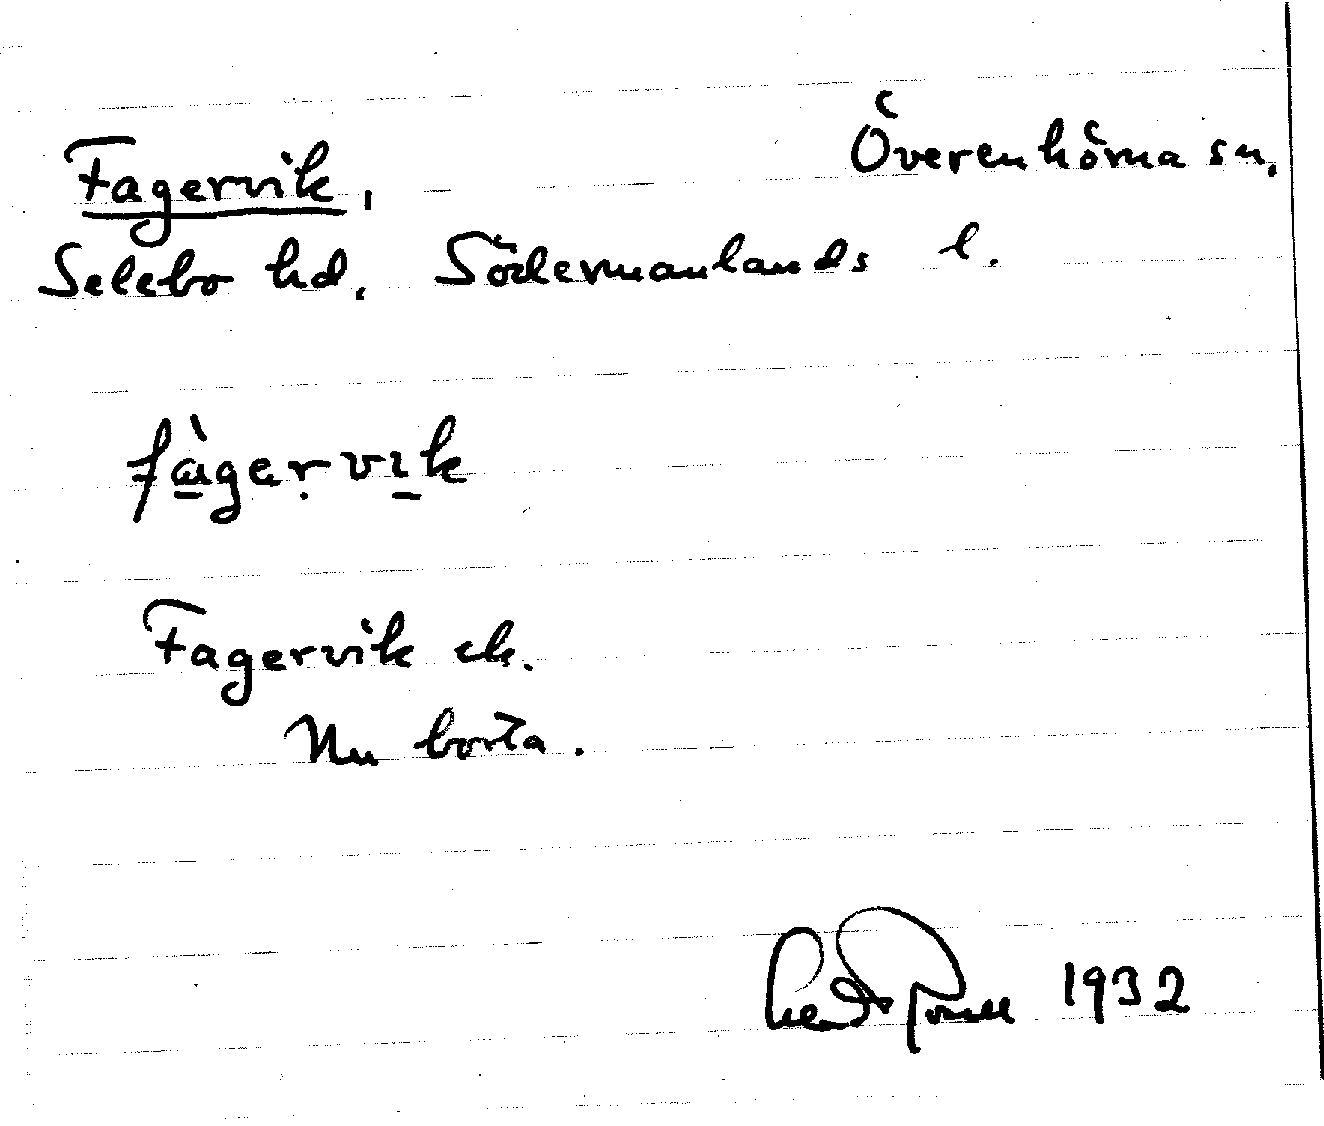 Fagervik, Överenhörna sn.
Selebo hd. Södermanlands l.
fàgẹrvik
Fagervik ek.
Nu borta.
1932